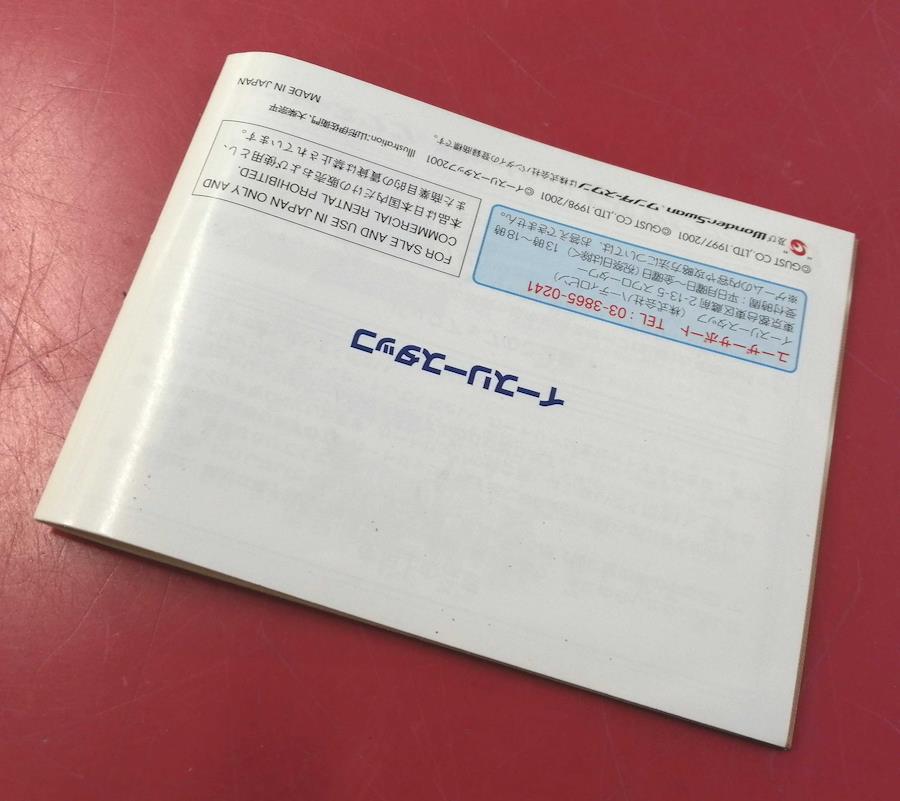 イースリースタッフ
ユーザーサポート TEL：03-3865-0241
イースリースタッフ (株式会社ハーティロビン)
東京都台東区蔵前 2-13-5 スワロータワー
受付時間：平日月曜日〜金曜日(祝祭日は除く) 13時〜18時
※ゲームの内容や攻略方法については、お答えできません。
©GUST CO.,LTD.1997/2001 ©GUST CO.,LTD.1998/2001 ©イースリースタッフ2001
" " 及び WonderSwan、ワンダースワン は株式会社バンダイの登録商標です。
FOR SALE AND USE IN JAPAN ONLY AND
COMMERCIAL RENTAL PROHIBITED.
本品は日本国内だけの販売および使用とし、
また商業目的の賃貸は禁止されています。
Illustration:山形伊左衛門、大柴宗平
MADE IN JAPAN